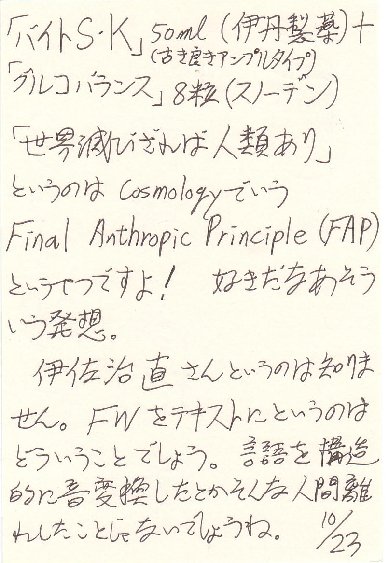 「バイトS・K」50ml(伊丹製薬)+
(古き良きアンプルタイプ)
「グルコバランス」8粒(スノーデン)
「世界滅びざれば人類あり」
というのは Cosmologyでいう
Final Anthropic Principle (FAP)
というやつですよ! 好きだなあそう
いう発想。
伊佐治直さんというのは知りま
せん。FWをテキストにというのは
どういうことでしょう。言語を構造
的に音変換したとかそんな人間離
れしたことじゃないでしょうね。
10/23